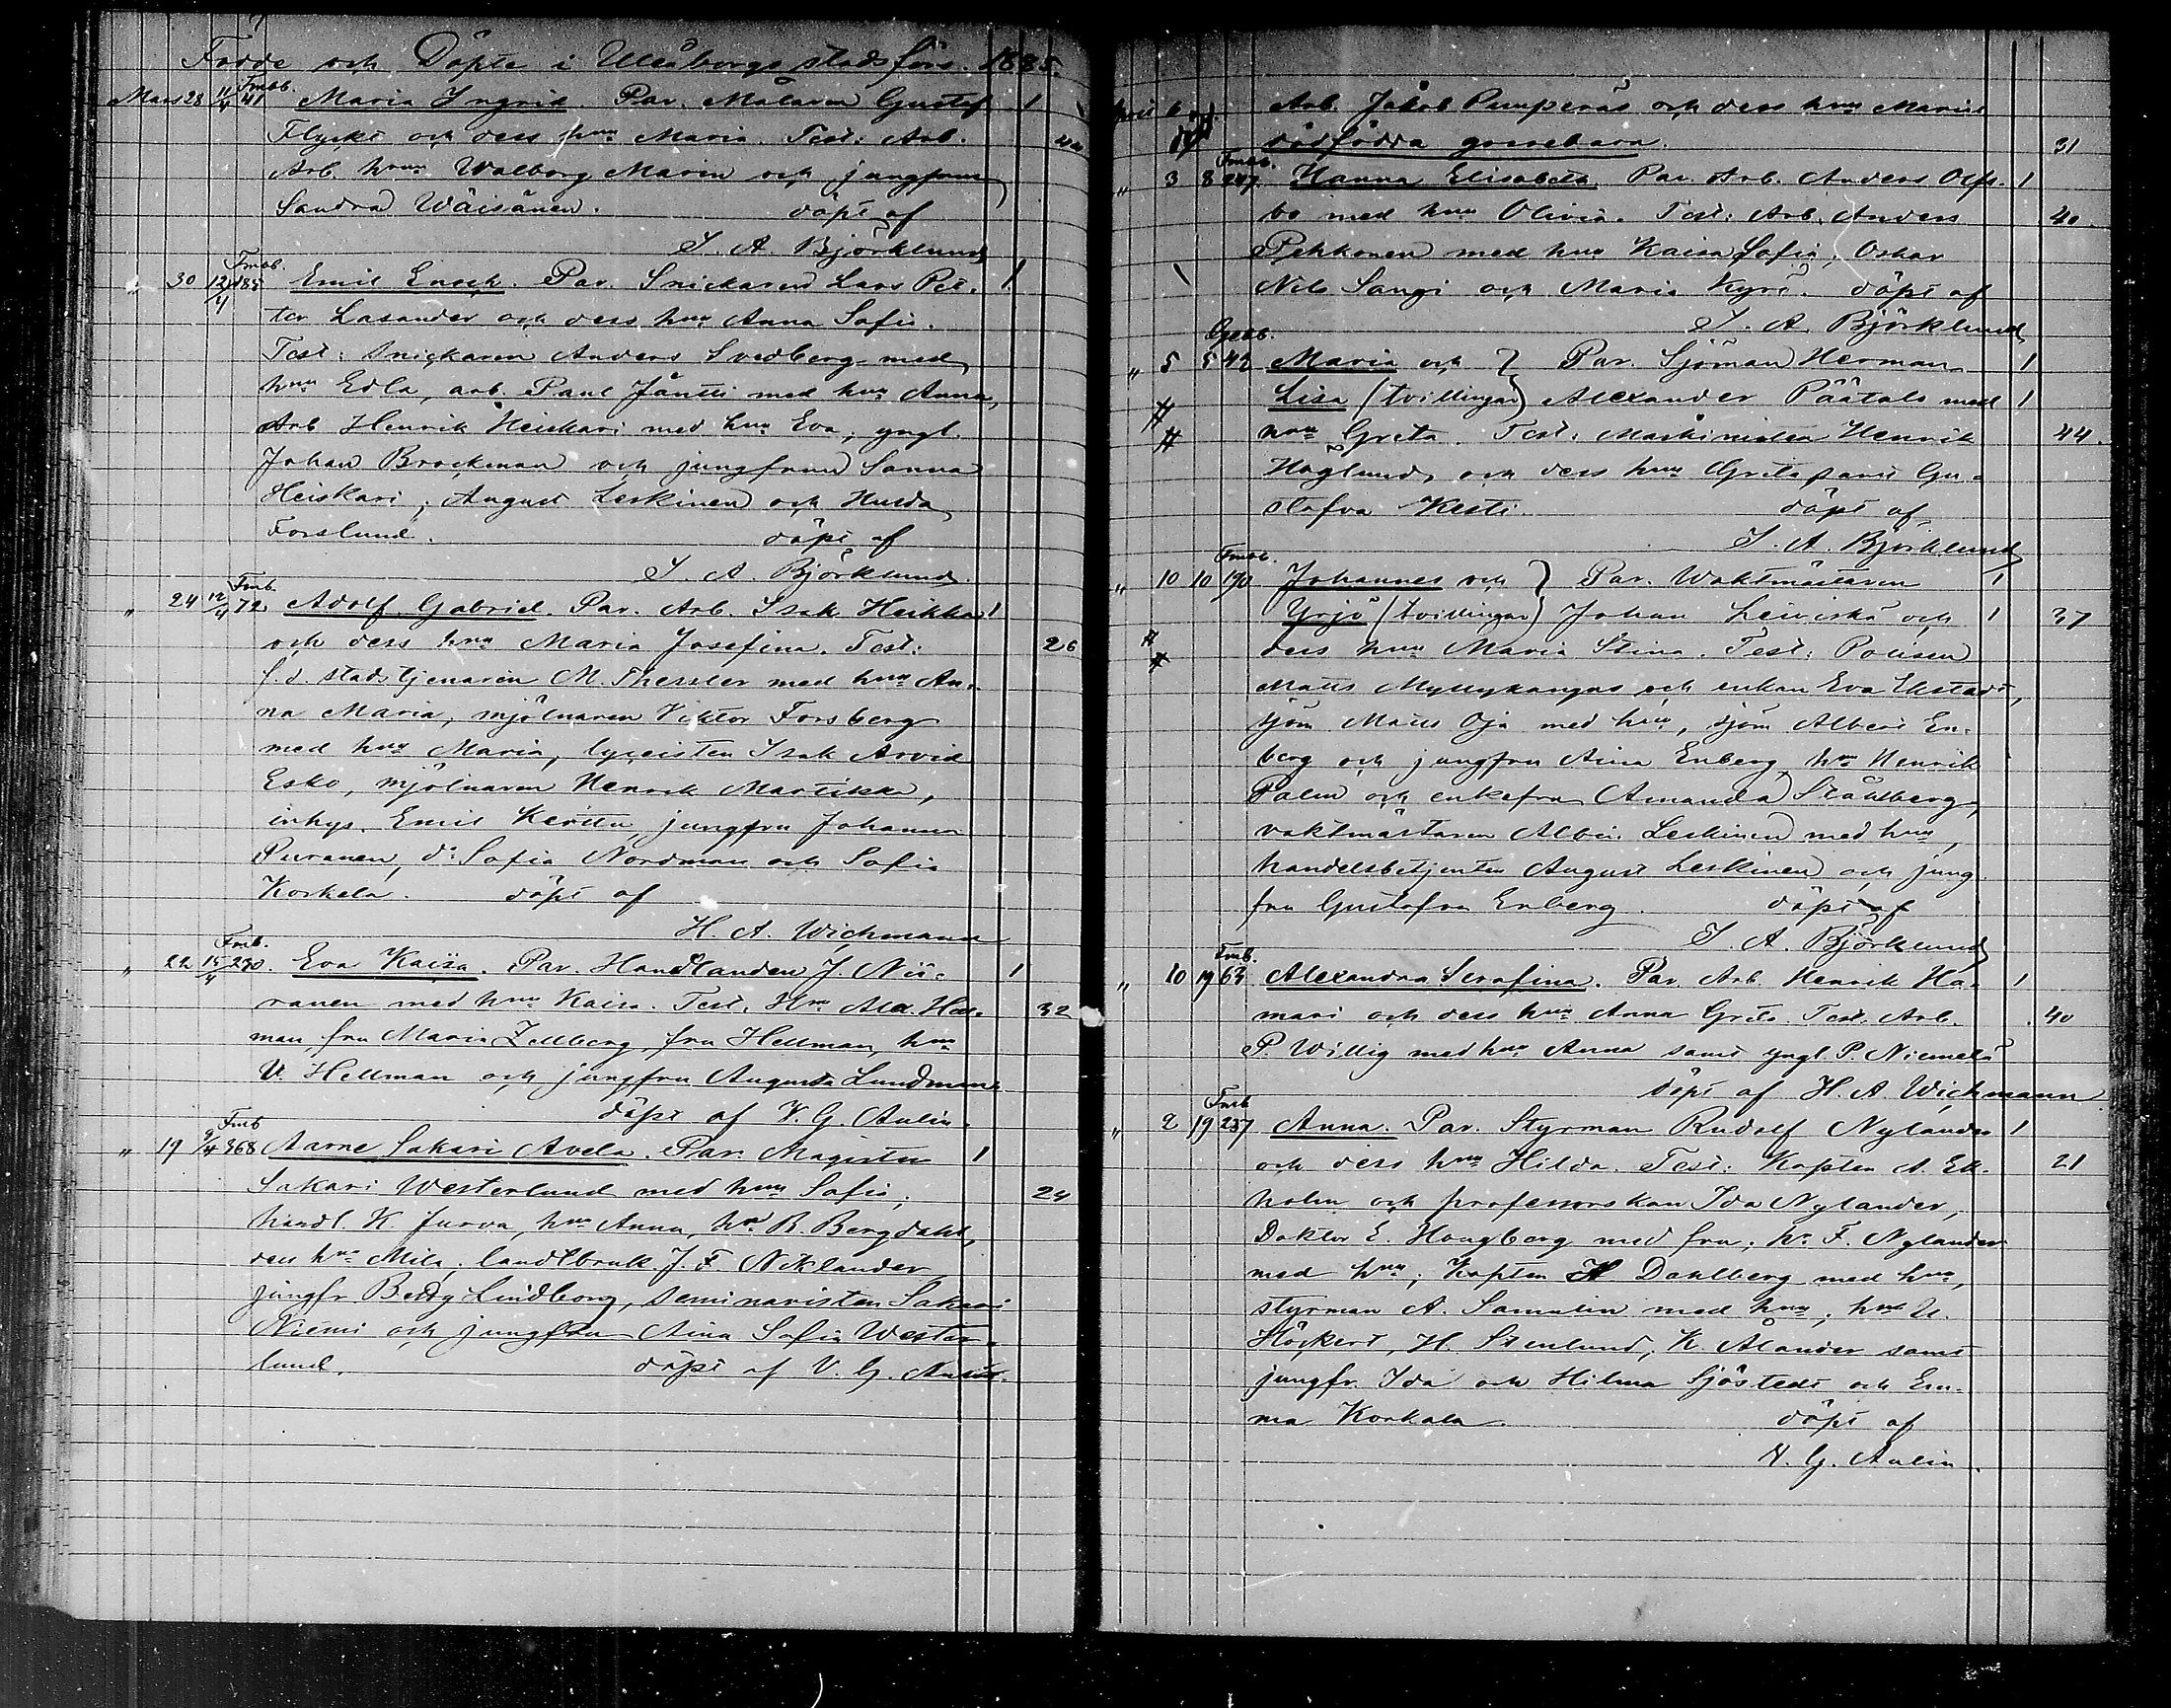 Födde och Döpte i Uleåborgs stadsförs. 1885.
Fmbb.
Mars 28 11/4 41 Maria Ingrid. Par. Målaren Gustaf 1
Flyckt och dess hru Maria. Test: Arb.
Arb. hrun Walborg Maria och jungfrun
Sandra Wäisänen. döpt af
I. A. Björklund
Fmbb.
" 30 12/4 185 Emil Enoch. Par. Snickaren Lars Pet- 1
ter Lasander och dess hru Anna Sofia.
Test: Snickaren Anders Svedberg med
hru Edla, arb. Paul Jäntti med hru Anna,
Arb Henrik Heiskari med hru Eva; yngl.
Johan Brockman och jungfrun Sanna
Heiskari; August Leskinen och Hulda
Forslund. döpt af
I. A. Björklund.
Fmb.
" 24 12/4 72 Adolf Gabriel. Par. Arb. Isak Heikka 1
och dess hru Maria Josefina. Test: 26
f.d. stadstjenaren M. Thessler med hru An-
na Maria, mjölnaren Viktor Forsberg
med hru Maria, lyceisten Isak Arvid
Esko, mjölnaren Henrik Martikka,
inhys. Emil Kerttu, jungfru Johanna
Puranen, d:o Sofia Nordman och Sofia
Korkela. döpt af
H. A. Wichmann
Fmb.
" 22 15/4 230. Eva Kaisa. Par. Handlanden J. Nii- 1
ranen med hru Kaisa. Test. Hrn Alex. Hell- 32
man, fru Maria Zellberg, fru Hellman, hrn
V. Hellman och jungfru Augusta Lundman
döpt af V. G. Aulin.
Fmb
" 19 9/4 368 Aarne Sakari Avela. Par. Magister 1
Sakari Westerlund med hru Sofia; 24
handl. K. Jurva, hru Anna, hrn B. Bergdahl,
dess hru Mila; landtbruk. J. F. Niklander,
jungfr. Lindborg, Seminaristen Sakari
Niemi och jungfru Aina Sofia Wester-
lund. döpt af V. G. Aulin.
6 Arb. Jakob Pumperäs och dess hru Marias
dödfödda gossebarn. 31
Fmbb.
" 3 8 247. Hanna Elisabeta. Par. Arb. Anders Olfs- 1
bo med hru Olivia. Test: Arb. Anders 40
Pehkonen med hru Kaisa Sofia; Oskar
Nils Sangi och Maria Kyrö. döpt af
I. A. Björklund
" 5 5 42 Maria och } Par. Sjöman Herman 1
Lisa (tvillingar) Alexander Päätalo med 1
hru Greta. Test: Maskinisten Henrik 44.
Haglund, och dess hru Greta samt Gu-
stafva Kesti döpt af
I. A. Björklund
Fmbb.
" 10 10 190 Johannes och } Par. Waktmästaren 1
Yrjö (tvillingar) Johan Leiviskä och 1 37
dess hru Maria Stina. Test: Polisen
Matts Myllykangas och enkan Eva Ekstedt,
sjöm Matts Oja med hru, sjöm Albert En-
berg och jungfru Aina Enberg, hrn Henrik
Palm och enkefru Amanda Ståhlberg,
vaktmästaren Albin Leskinen med hru,
handelsbetjenten August Leskinen och jung-
fru Gustafva Enberg. döpt af
I. A. Björklund
Fmb.
" 10 19 63 Alexandra Serafina. Par. Arb. Henrik Ha- 1
mari och dess hru Anna Greta. Test: Arb. 40
P. Willig med hru Anna samt yngl. P. Niemelä
döpt af H. A. Wichmann.
Fmb
" 2 19 237 Anna. Par. Styrman Rudolf Nylander 1
och dess hru Hilda. Test: Kapten A. Ek- 21
holm och professorskan Ida Nylander,
Doktor E. Hougberg med fru; hr. F. Nylander
med hru; Kapten H Dahlberg med hru,
styrman A. Samulin med hru; hrr U.
Höckert, H. Stenlund, K. Ålander samt
jungfr. Ida och Hilma Sjöstedt och Em-
ma Korkala. döpt af
V. G. Aulin.